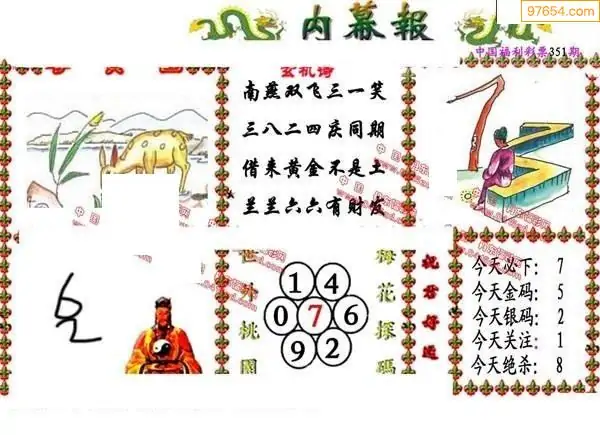 97654.com
内幕報
中国福利彩票351期
玄机诗
南燕双飞三一笑
三八二四庆同期
借来黄金不是土
兰兰六六有财发
世外桃園
1 4
0 7 6
9 2
梅花探碼
祝君好运
今天必下: 7
今天金码: 5
今天银码: 2
今天关注: 1
今天绝杀: 8